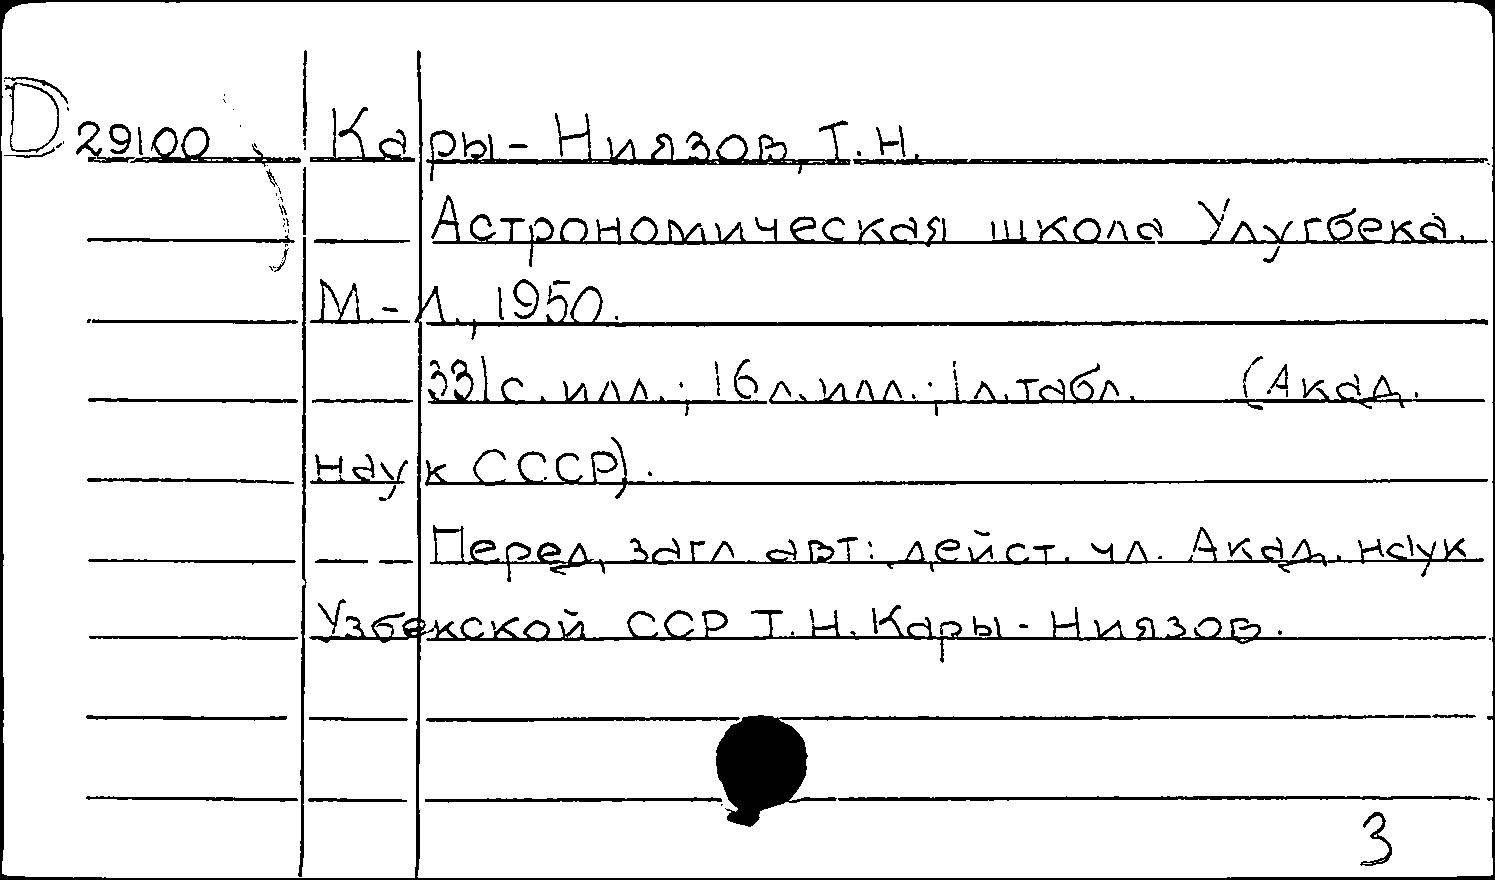 D 29100 Кары-Ниязов, Т.Н.
Астрономическая школа Улугбека.
М.-Л., 1950.
331с. илл.; 16 л. илл.; 1 л. табл. (Акад.
наук СССР).
Перед загл авт: дейст. чл. Акад. наук
Узбекской ССР Т.Н. Кары-Ниязов.
3